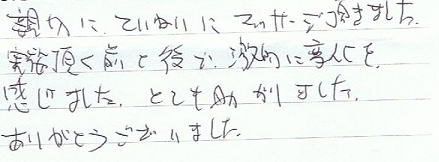 親切に、ていねいに マッサージ頂きました。
実際頂く前と後で、激的に変化を
感じました。とても助かりました。
ありがとうございました。